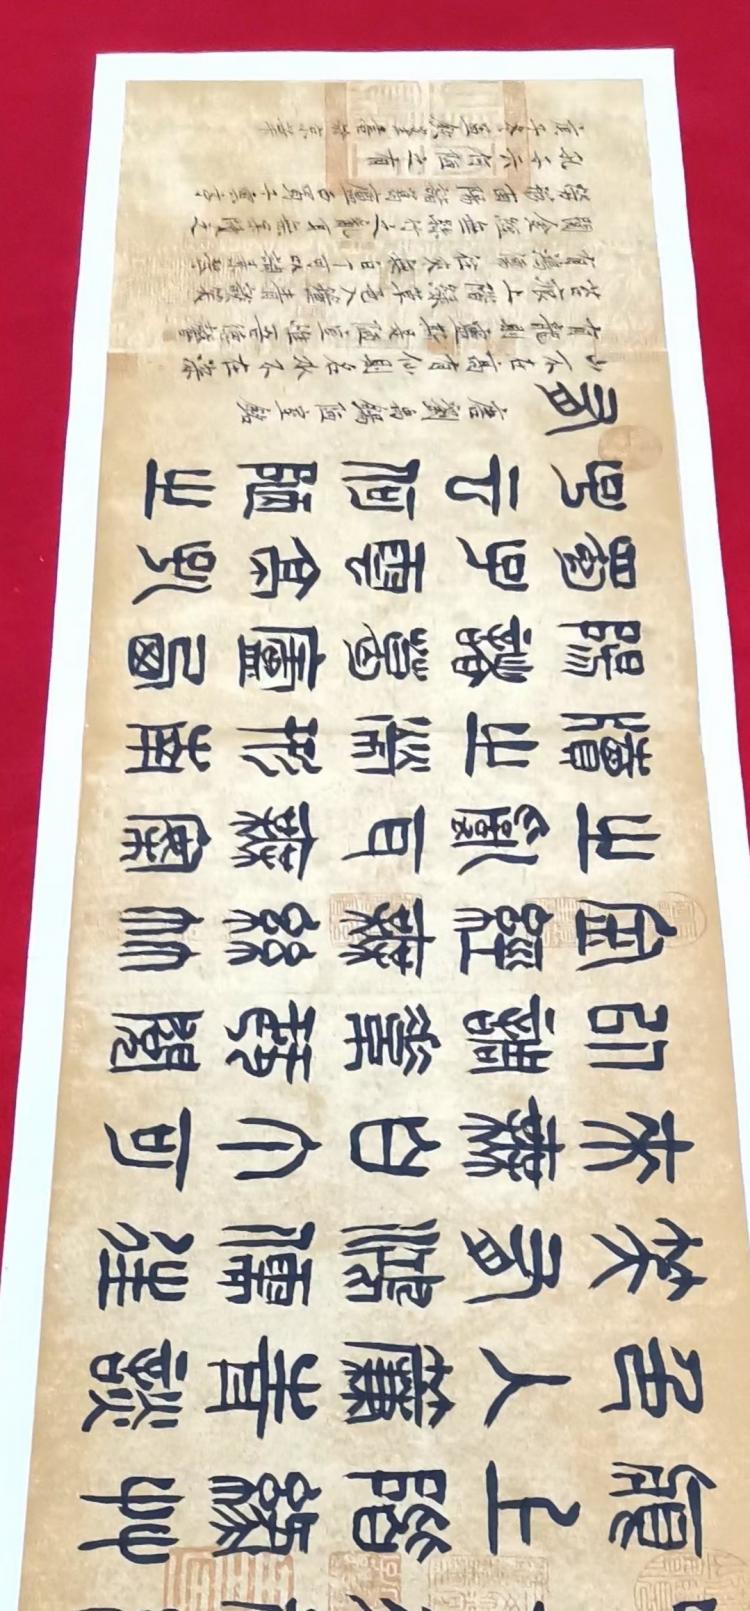 痕上階綠艸
色入簾青談
笑有鴻儒往
來無白丁可
以調素琴閱
金經無絲竹
之亂耳無案
牘之勞形南
陽諸葛廬西
蜀子雲亭孔
子云何陋之
有
唐劉禹錫陋室銘
山不在高有仙則名水不在深
有龍則靈斯是陋室惟吾德馨
苔痕上階綠草色入簾青談笑
有鴻儒往來無白丁可以調素琴
閱金經無絲竹之亂耳無案牘之
勞形南陽諸葛廬西蜀子雲亭
孔子云何陋之有